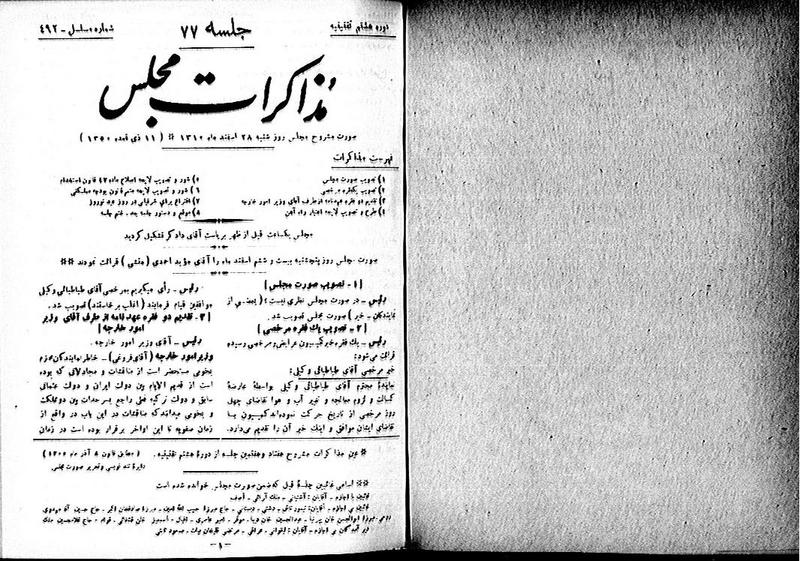 دوره هشتم تقنینیه
جلسه ۷۷
شماره مسلسل - ۴۹۲
مذاکرات مجلس
صورت مشروح مجلس روز شنبه ۲۸ اسفند ماه ۱۳۱۰ ※ ( ۱۱ ذی قعده ۱۳۵۰ )
فهرست مذاکرات
۱) تصویب صورت مجلس
۲) تصویب یکفقره مرخصی
۳) تقدیم دو فقره عهدنامه ازطرف آقای وزیر امور خارجه
۴) طرح و تصویب لایحه اعتبار راه آهن
۵) شور و تصویب لایحه اصلاح ماده ۴۲ قانون استخدام
۶) شور و تصویب لایحه متمم قانون بودجه مملکتی
۷) اقتراع برای شرفیابی در روز عید نوروز
۸) موقع و دستور جلسه بعد - ختم جلسه
مجلس یکساعت قبل از ظهر بریاست آقای دادگر تشکیل گردید
صورت مجلس روز پنجشنبه بیست و ششم اسفند ماه را آقای مؤید احمدی ( منشی ) قرائت نمودند ※※
[ ۱ - تصویب صورت مجلس ]
رئیس - در صورت مجلس نظری نیست ؟ ( بعضی از
نمایندگان - خیر ) صورت مجلس تصویب شد.
[ ۲ - تصویب یك فقره مرخصی ]
رئیس - یك فقره خبر کمیسیون عرایض و مرخصی رسیده
قرائت می‌شود:
خبر مرخصی آقای طباطبائی وکیلی:
نماینده محترم آقای طباطبائی وکیلی بواسطهٔ عارضهٔ
کسالت و لزوم معالجه و تغییر آب و هوا تقاضای چهل
روز مرخصی از تاریخ حرکت نموده‌اند کمیسیون با
تقاضای ایشان موافق و اینك خبر آن را تقدیم می‌دارد.
رئیس - رأی میگیریم بمرخصی آقای طباطبائی وکیلی
موافقین قیام فرمایند ( اغلب برخاستند ) تصویب شد.
[ ۳ - تقدیم دو فقره عهدنامه از طرف آقای وزیر
امور خارجه ]
رئیس - آقای وزیر امور خارجه.
وزیر امور خارجه ( آقای فروغی ) - خاطر نمایندگان محترم
بخوبی مستحضر است از مناقشات و مجادلاتی که بوده
است از قدیم الایام بین دولت ایران و دولت عثمانی
سابق و دولت ترکیه فعلی راجع بسرحدات بین دو مملکت
و بخوبی میدانند که مناقشات در این باب در واقع از
زمان صفویه تا این اواخر برقرار بوده است در زمان
※ عین مذاکرات مشروح هفتاد و هفتمین جلسه از دورهٔ هشتم تقنینیه.
( مطابق قانون ۸ آذر ماه ۱۳۰۶ )
دایرهٔ تند نویسی و تحریر صورت مجلس
※※ اسامی غائبین جلسهٔ قبل که ضمن صورت مجلس خوانده شده است
غائبین با اجازه - آقایان: آشتیانی - ملك آرائی - آصف
- ۱ -